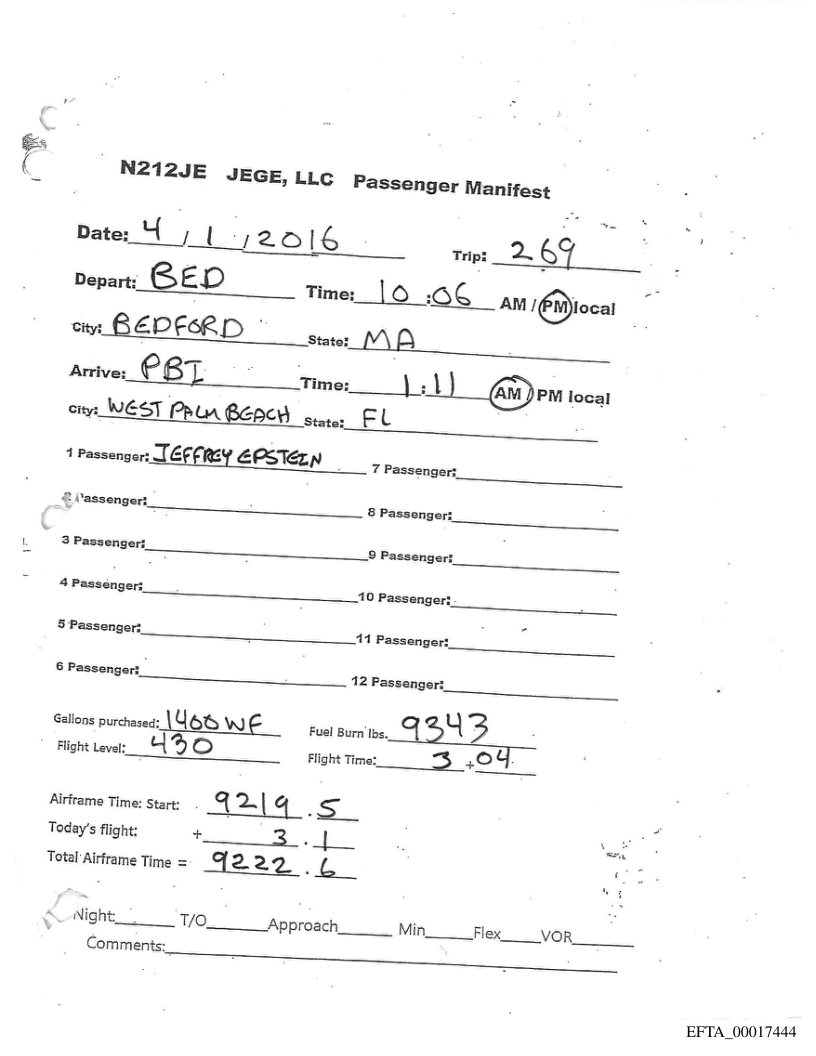 N212JE JEGE, LLC Passenger Manifest
Date: 4 / 1 / 2016 Trip: 269
Depart: BED Time: 10 :06 AM / PM local
City: BEDFORD State: MA
Arrive: PBI Time: 1:11 AM / PM local
City: WEST PALM BEACH State: FL
1 Passenger: JEFFREY EPSTEIN 7 Passenger:
Passenger: 8 Passenger:
3 Passenger: 9 Passenger:
4 Passenger: 10 Passenger:
5 Passenger: 11 Passenger:
6 Passenger: 12 Passenger:
Gallons purchased: 1400 WF Fuel Burn lbs. 9343
Flight Level: 430 Flight Time: 3 + 04
Airframe Time: Start: 9219 . 5
Today's flight: + 3 . 1
Total Airframe Time = 9222 . 6
Night: T/O Approach Min Flex VOR
Comments:
EFTA_00017444